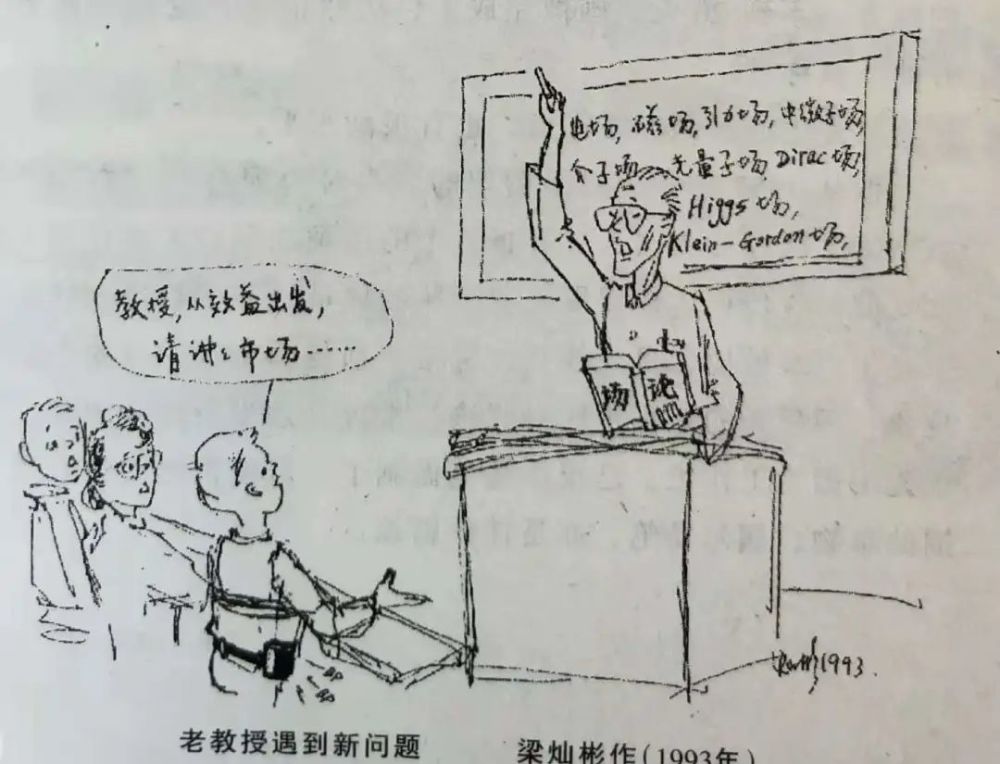 电场, 磁场, 引力场, 中微子场,
介子场, 光量子场, Dirac场,
Higgs场,
Klein-Gordon场,
教授, 从效益出发,
请讲讲市场……
场 论
BP
BP
1993.
老教授遇到新问题
梁灿彬作(1993年)